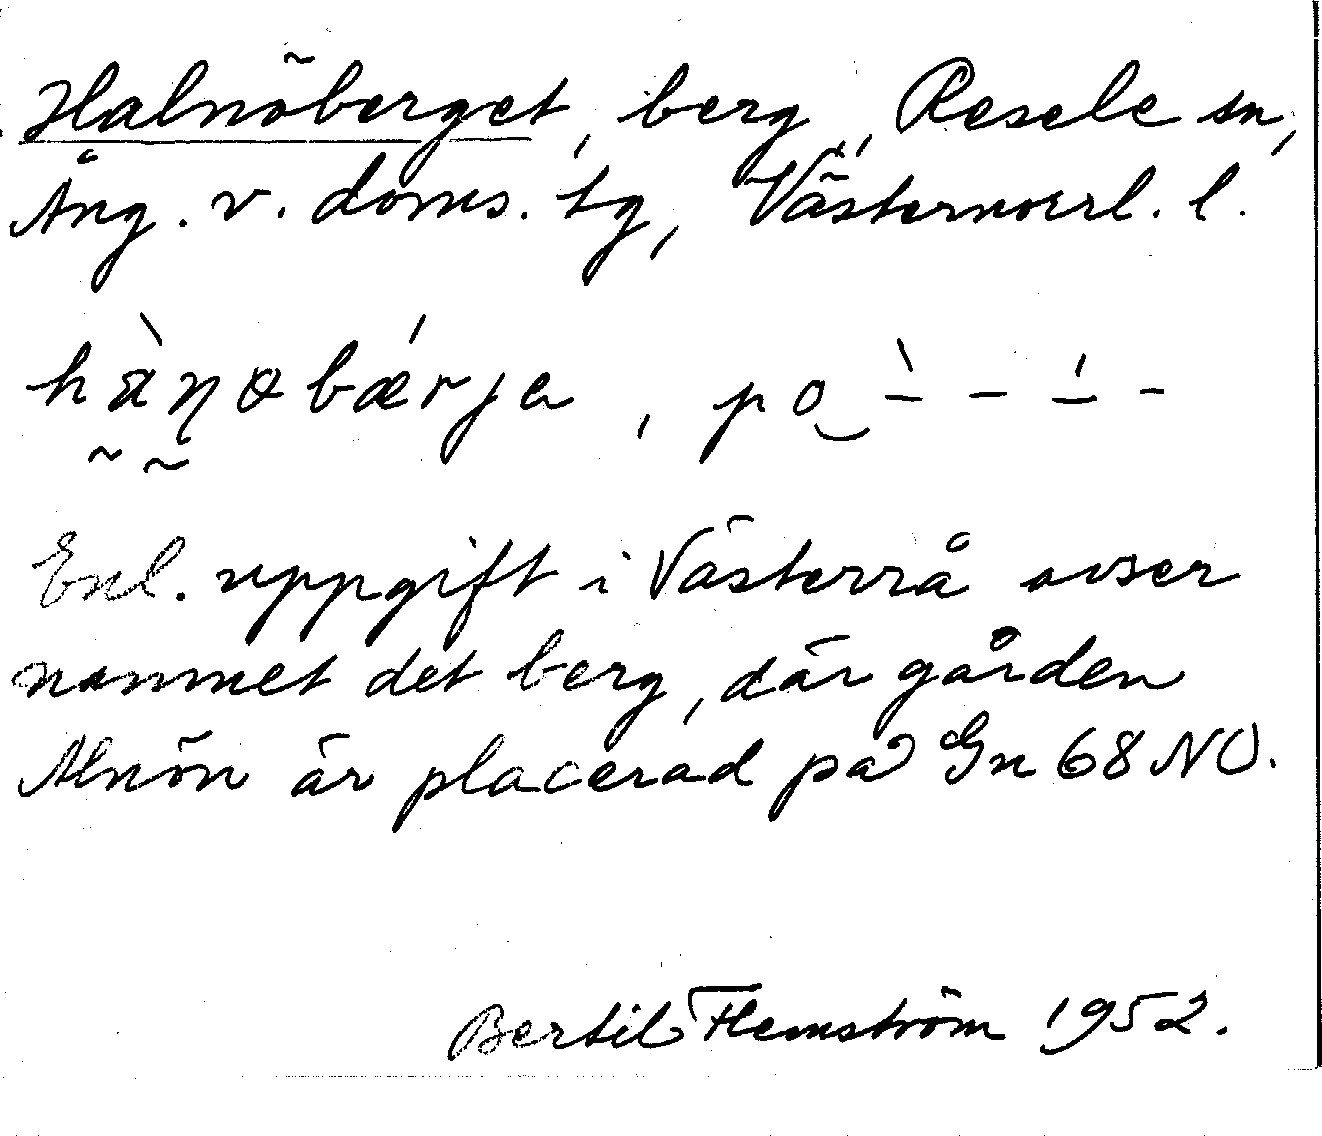 Halnöberget, berg, Resele sn,
Ång. v. doms. tg, Västernorrl. l.
hàṇøbǽrja, på `- - ´- -
Enl. uppgift i Västerrå avser
namnet det berg, där gården
Alnön är placerad på Gn 68 NO.
Bertil Flemström 1952.